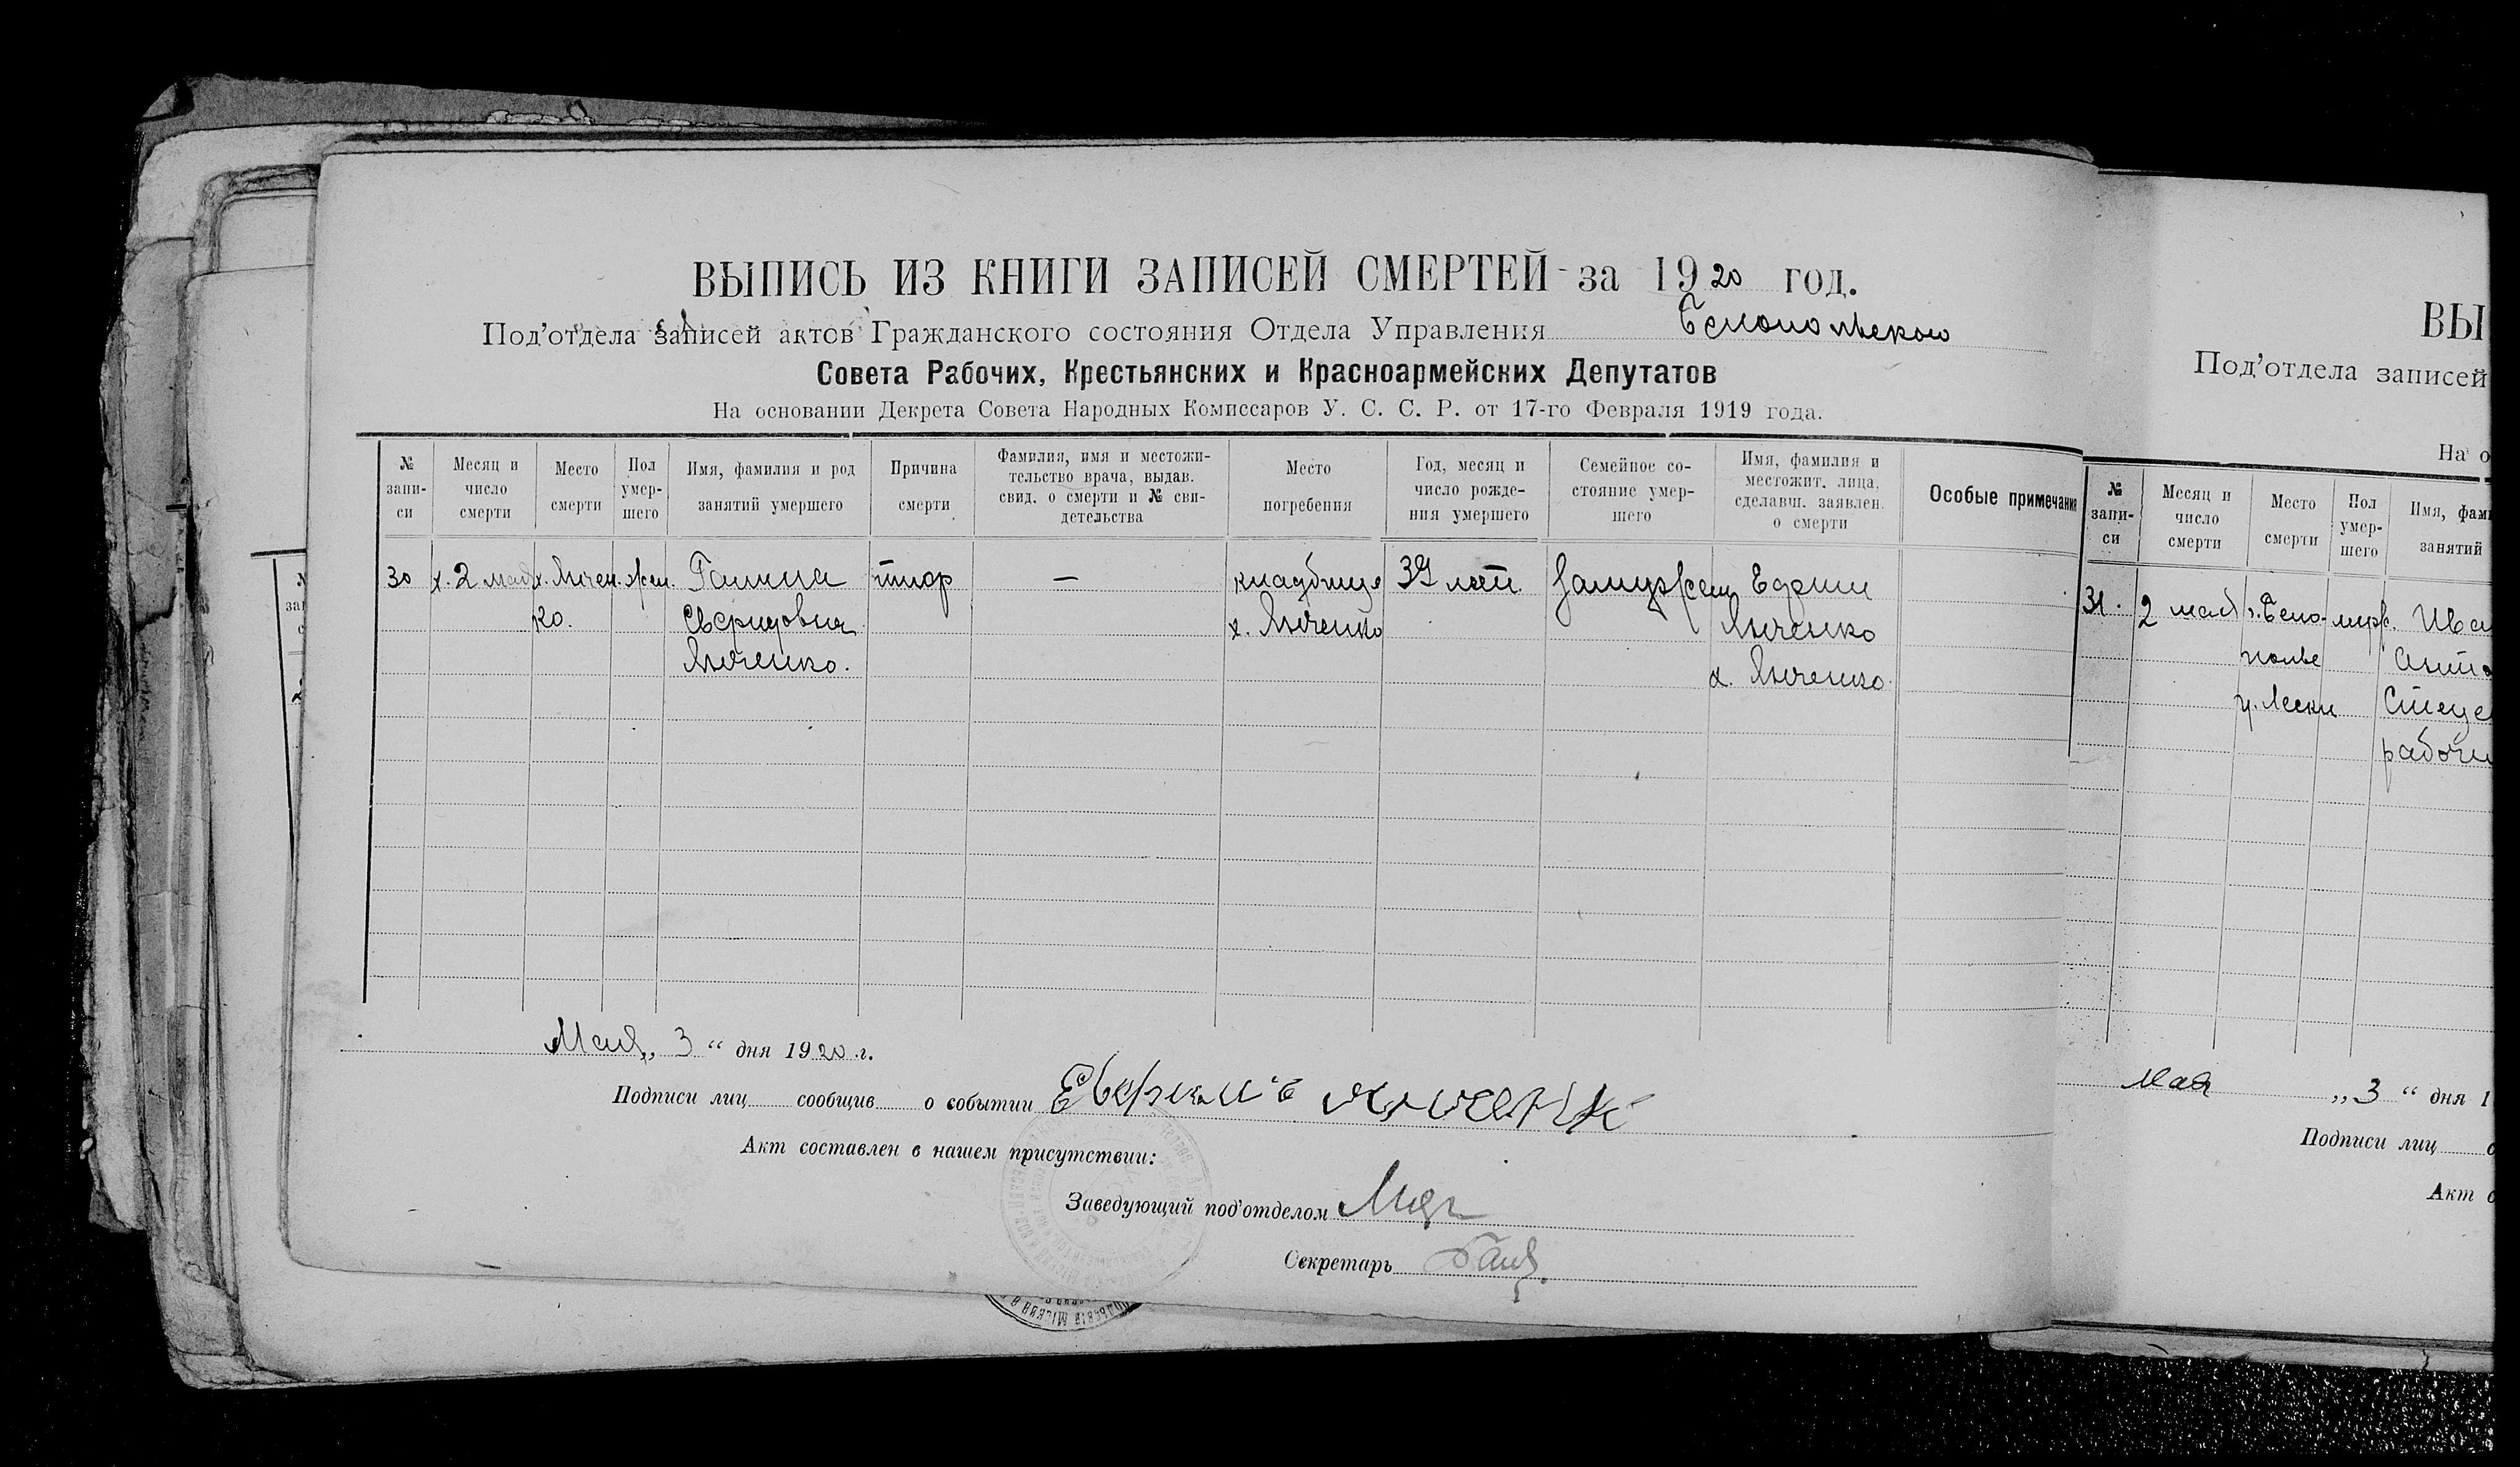 ВЫПИСЬ ИЗ КНИГИ ЗАПИСЕЙ СМЕРТЕЙ за 1920 год.
Под'отдела записей актов Гражданского состояния Отдела Управления Белопольского
Совета Рабочих, Крестьянских и Красноармейских Депутатов
На основании Декрета Совета Народных Комиссаров У. С. С. Р. от 17-го Февраля 1919 года.
№ запи- си
Месяц и число смерти
Место смерти
Пол умер- шего
Имя, фамилия и род занятий умершего
Причина смерти
Фамилия, имя и местожи- тельство врача, выдав. свид. о смерти и № сви- детельства
Место погребения
Год, месяц и число рожде- ния умершего
Семейное со- стояние умер- шего
Имя, фамилия и местожит. лица, сделавш. заявлен. о смерти
Особые примечания
30 2 мая х. Янчен- жен. Галина — кладбище 39 лет замуж Ефрим
ко. Свиридовна х. Янченко Янченко
Янченко. х. Янченко
Мая „ 3 “ дня 1920 г.
Подписи лиц сообщив о событии
Акт составлен в нашем присутствии:
Заведующий под'отделом
Секретарь
ВЫ
Под'отдела записей
На о
№ запи- си
Месяц и число смерти
Место смерти
Пол умер- шего
Имя, фам
занятий
31. 2 мая г. Бело- муж. Ива
полье Анто
у. Лески Стеце
рабочи
мая „ 3 “ дня 1
Подписи лиц с
Акт с